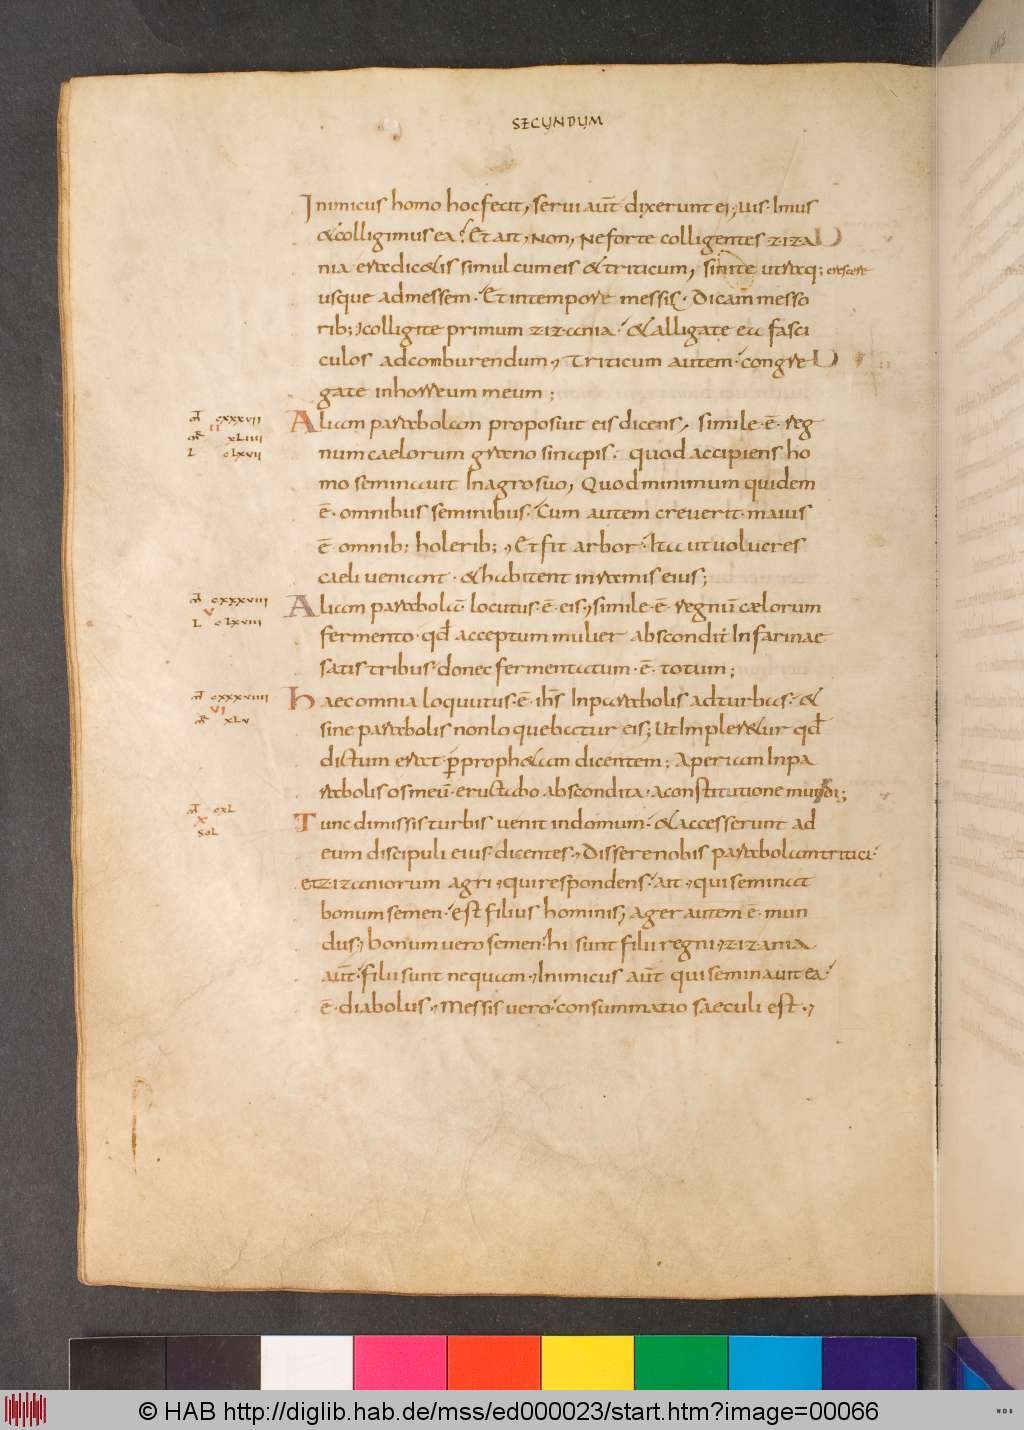 SECUNDUM
Inimicus homo hoc fecit, serui aut̄ dixerunt ei; uis. Imus
& colligimus ea? Et ait, Non, Ne forte colligentes ziza
nia eradic&is simul cum eis & triticum, sinite utraq; crescere
usque ad messem. Et in tempore messis. Dicam messo
rib; Icolligite primum zizania. & alligate ea fasci
culos ad comburendum, Triticum autem. congre
gate in horreum meum;
m̄ cxxxvii
II
m̄r xliiii
L clxvii
Aliam parabolam proposuit eis dicens, simile. ē. reg
num caelorum grano sinapis. quod accipiens ho
mo seminauit In agro suo, Quod minimum quidem
ē. omnibus seminibus. Cum autem creuerit. maius
ē omnib; holerib;, Et fit arbor. Ita ut uolucres
caeli ueniant. & habitent in ramis eius;
m̄ cxxxviii
V
L clxviii
Aliam parabolā locutus. ē. eis, simile. ē. regnū cælorum
fermento. qđ acceptum mulier abscondit In farinae
satis tribus. donec fermentatum. ē. totum;
m̄ cxxxviiii
VI
m̄r xlv
Haec omnia loquutus. ē. ih̄s In parabolis ad turbas. &
sine parabolis non loquebatur eis; Ut Impler&ur qđ
dictum erat. p̄ proph&am dicentem; Aperiam In pa
rabolis os meū. eructabo abscondita. a constitutione mundi;
m̄ cxl
X
sol
Tunc dimissis turbis uenit in domum. & accesserunt ad
eum discipuli eius. dicentes, Dissere nobis parabolam tritici
et zizaniorum agri, qui respondens. ait, qui seminat
bonum semen. est filius hominis; Ager autem ē. mun
dus, bonum uero semen. hi sunt filii regni, zizania
aut̄. filii sunt nequam, Inimicus aut̄ qui seminauit ea.
ē. diabolus, Messis uero. consummatio saeculi est.,
© HAB http://diglib.hab.de/mss/ed000023/start.htm?image=00066